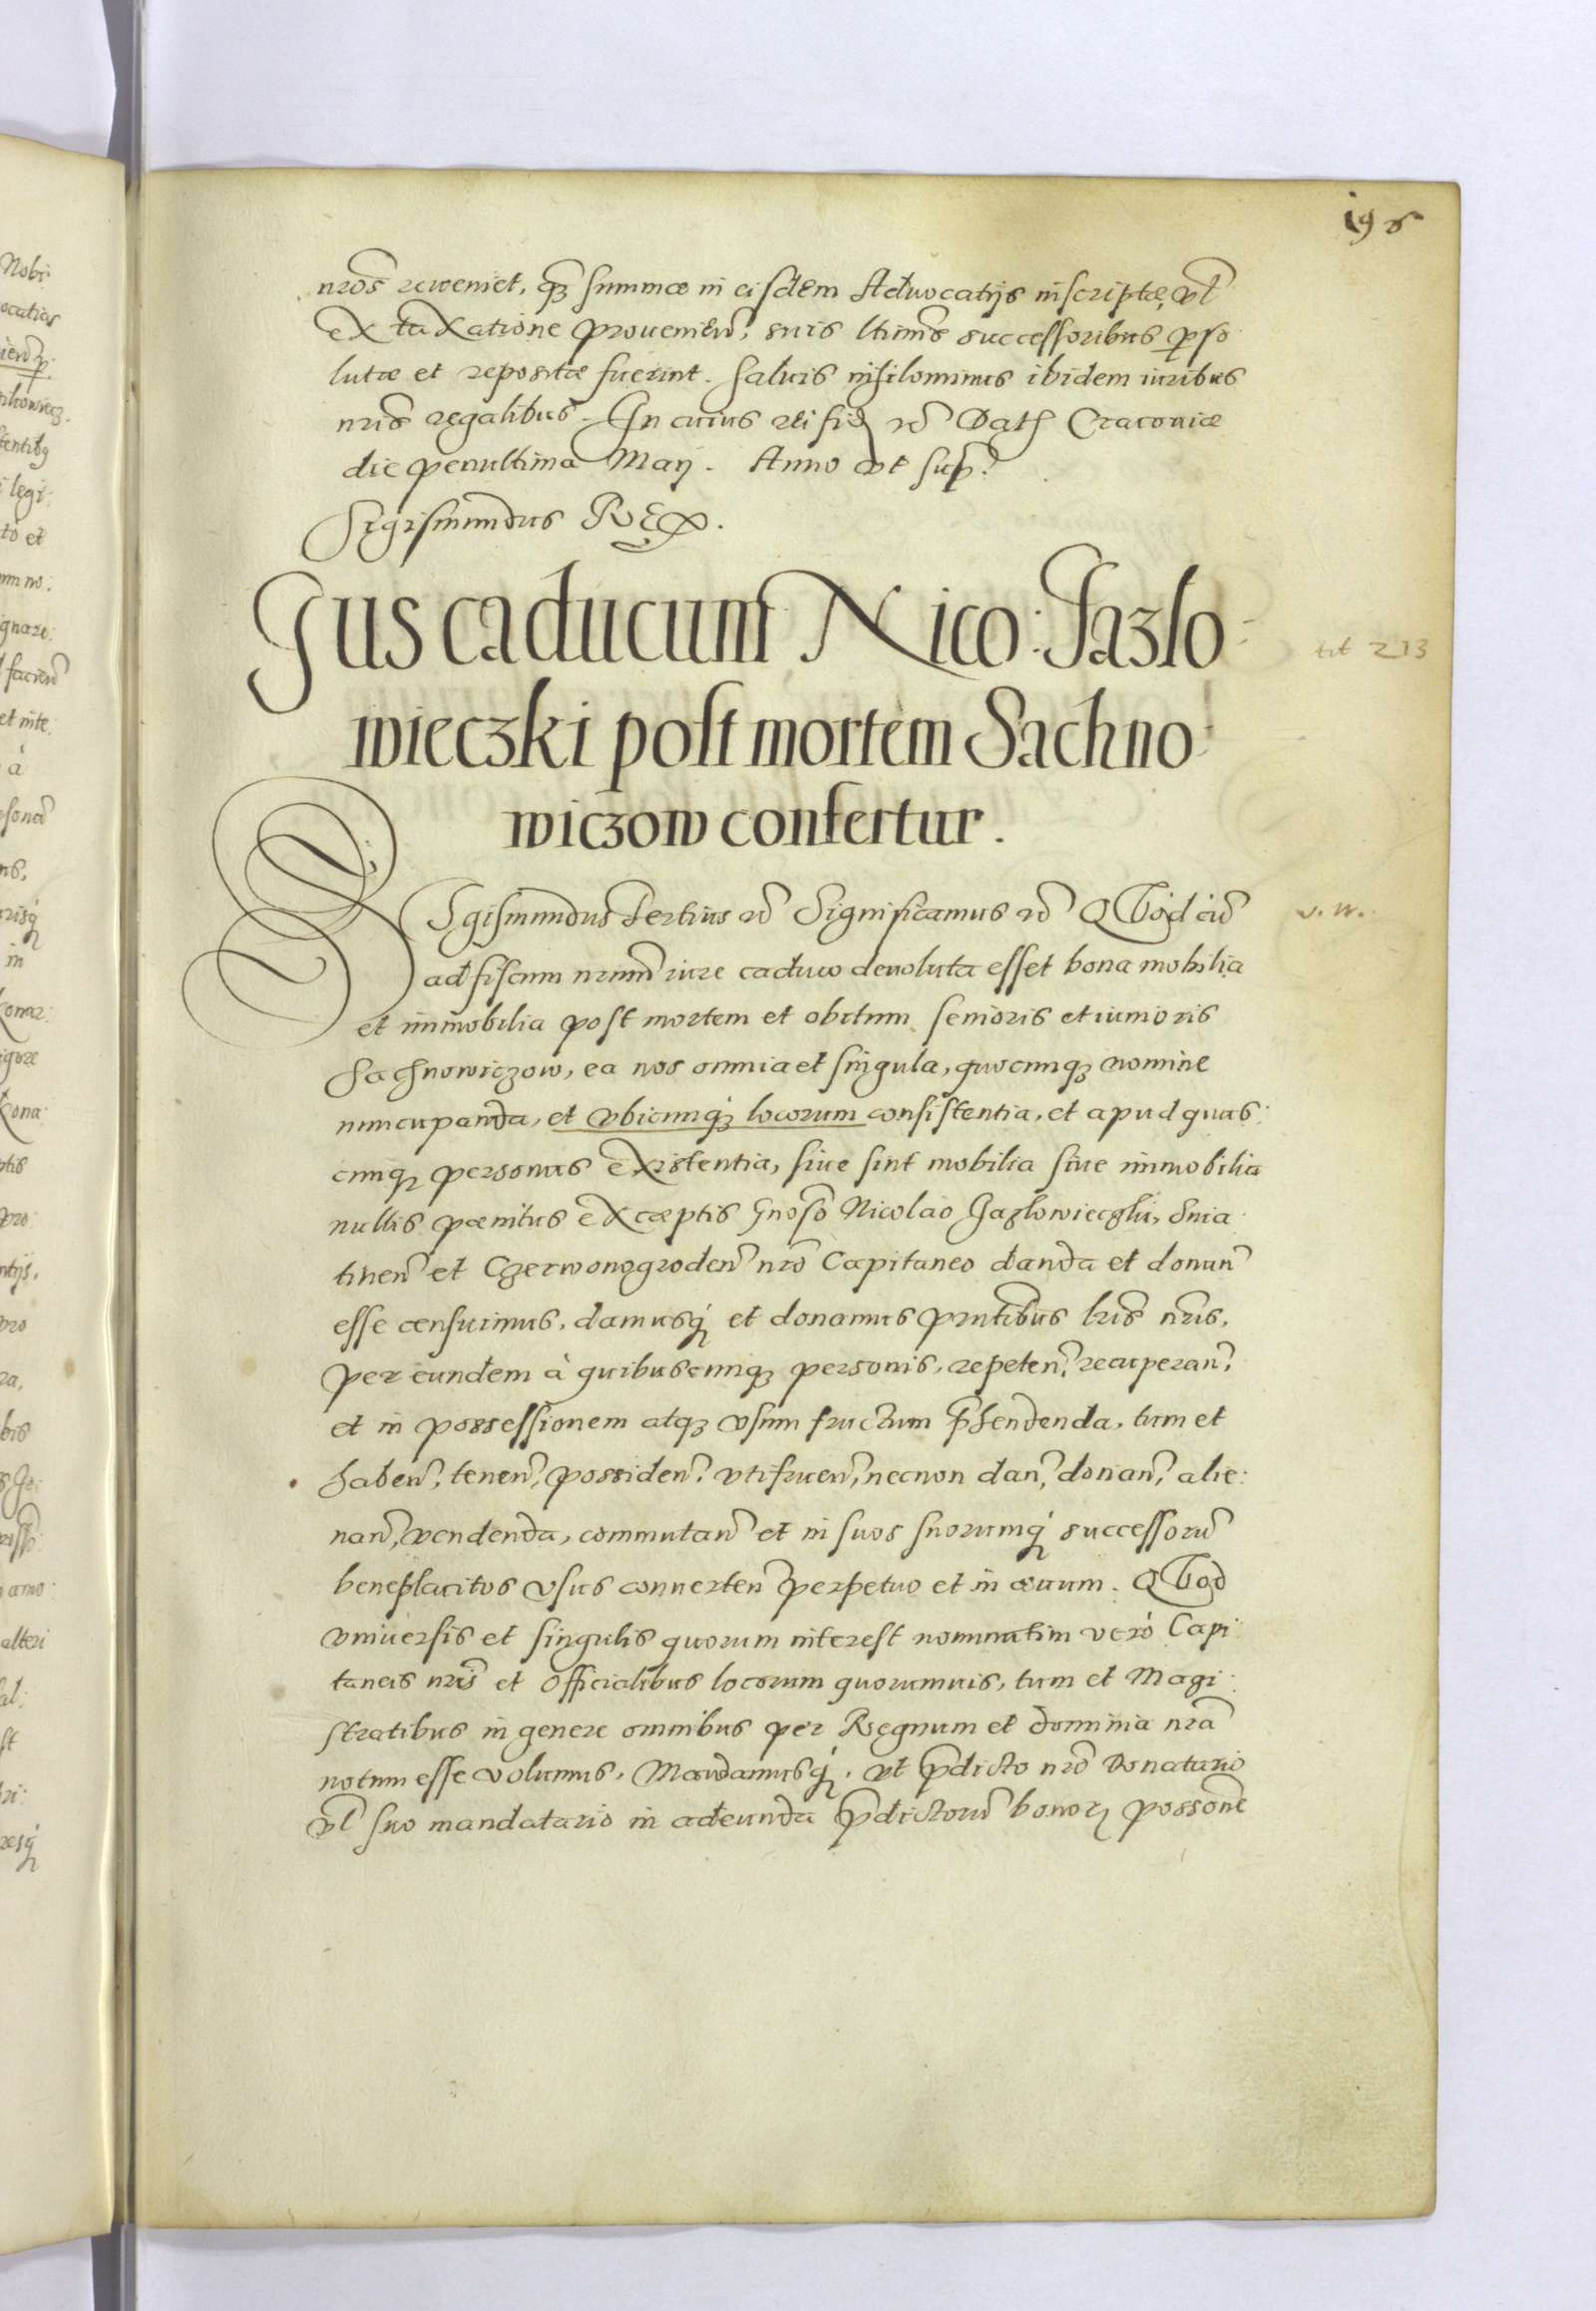 198
nros reveniet, quae summae in eisdem Advocatijs inscriptae, vel
ex taxatione provenien. suis ltimis successoribus perso
lutae et repositae fuerint. Salvis nihilominus ibidem iuribus
nris regalibus. In cuius rei fid. Dat. Cracoviae
die penultima Maij. Anno vt sup.
Sigismundus REX.
Jus caducum Nico: Jazlo:
wieczki post mortem Sachno:
wiczow confertur.
tit 213
Sigismundus Tertius Significamus Quod cum
v. w.
ad fiscum nrum iure caduco devoluta esset bona mobilia
et immobilia post mortem et obitum senioris et iunioris
Sachnowiczow, ea nos omnia et singula, quocunq3 nomine
nuncupanda, et vbicunq3 locorum consistentia, et apud quas:
cunq3 personas existentia, sive sint mobilia sive immobilia
nullis paenitus excaeptis Gnoso Nicolao Jazlowieczki, Snia
tinen et Czerwonogroden nro Capitaneo danda et donan
esse censuimus, damusq et donamus pntibus lris nris,
per eundem à quibuscunq3 personis, repeten. recuperan.
et in possessionem atq3 vsum fructum prehendenda, tum et
haben. tenen. possiden. vtifruen. necnon dan. donan. alie:
nan. vendenda, commutan et in suos suorumq successorum
beneplacitos vsus converten perpetuo et in aevum. Quod
vniversis et singulis quorum interest nominatim verò Capi:
taneis nris et Officialibus locorum quorumvis, tum et Magi:
stratibus in genere omnibus per Regnum et dominia nra
notum esse volumus, Mandamusq, vt praedicto nro Donatario
vel suo mandatario in adeunda praedictorum bonor possone